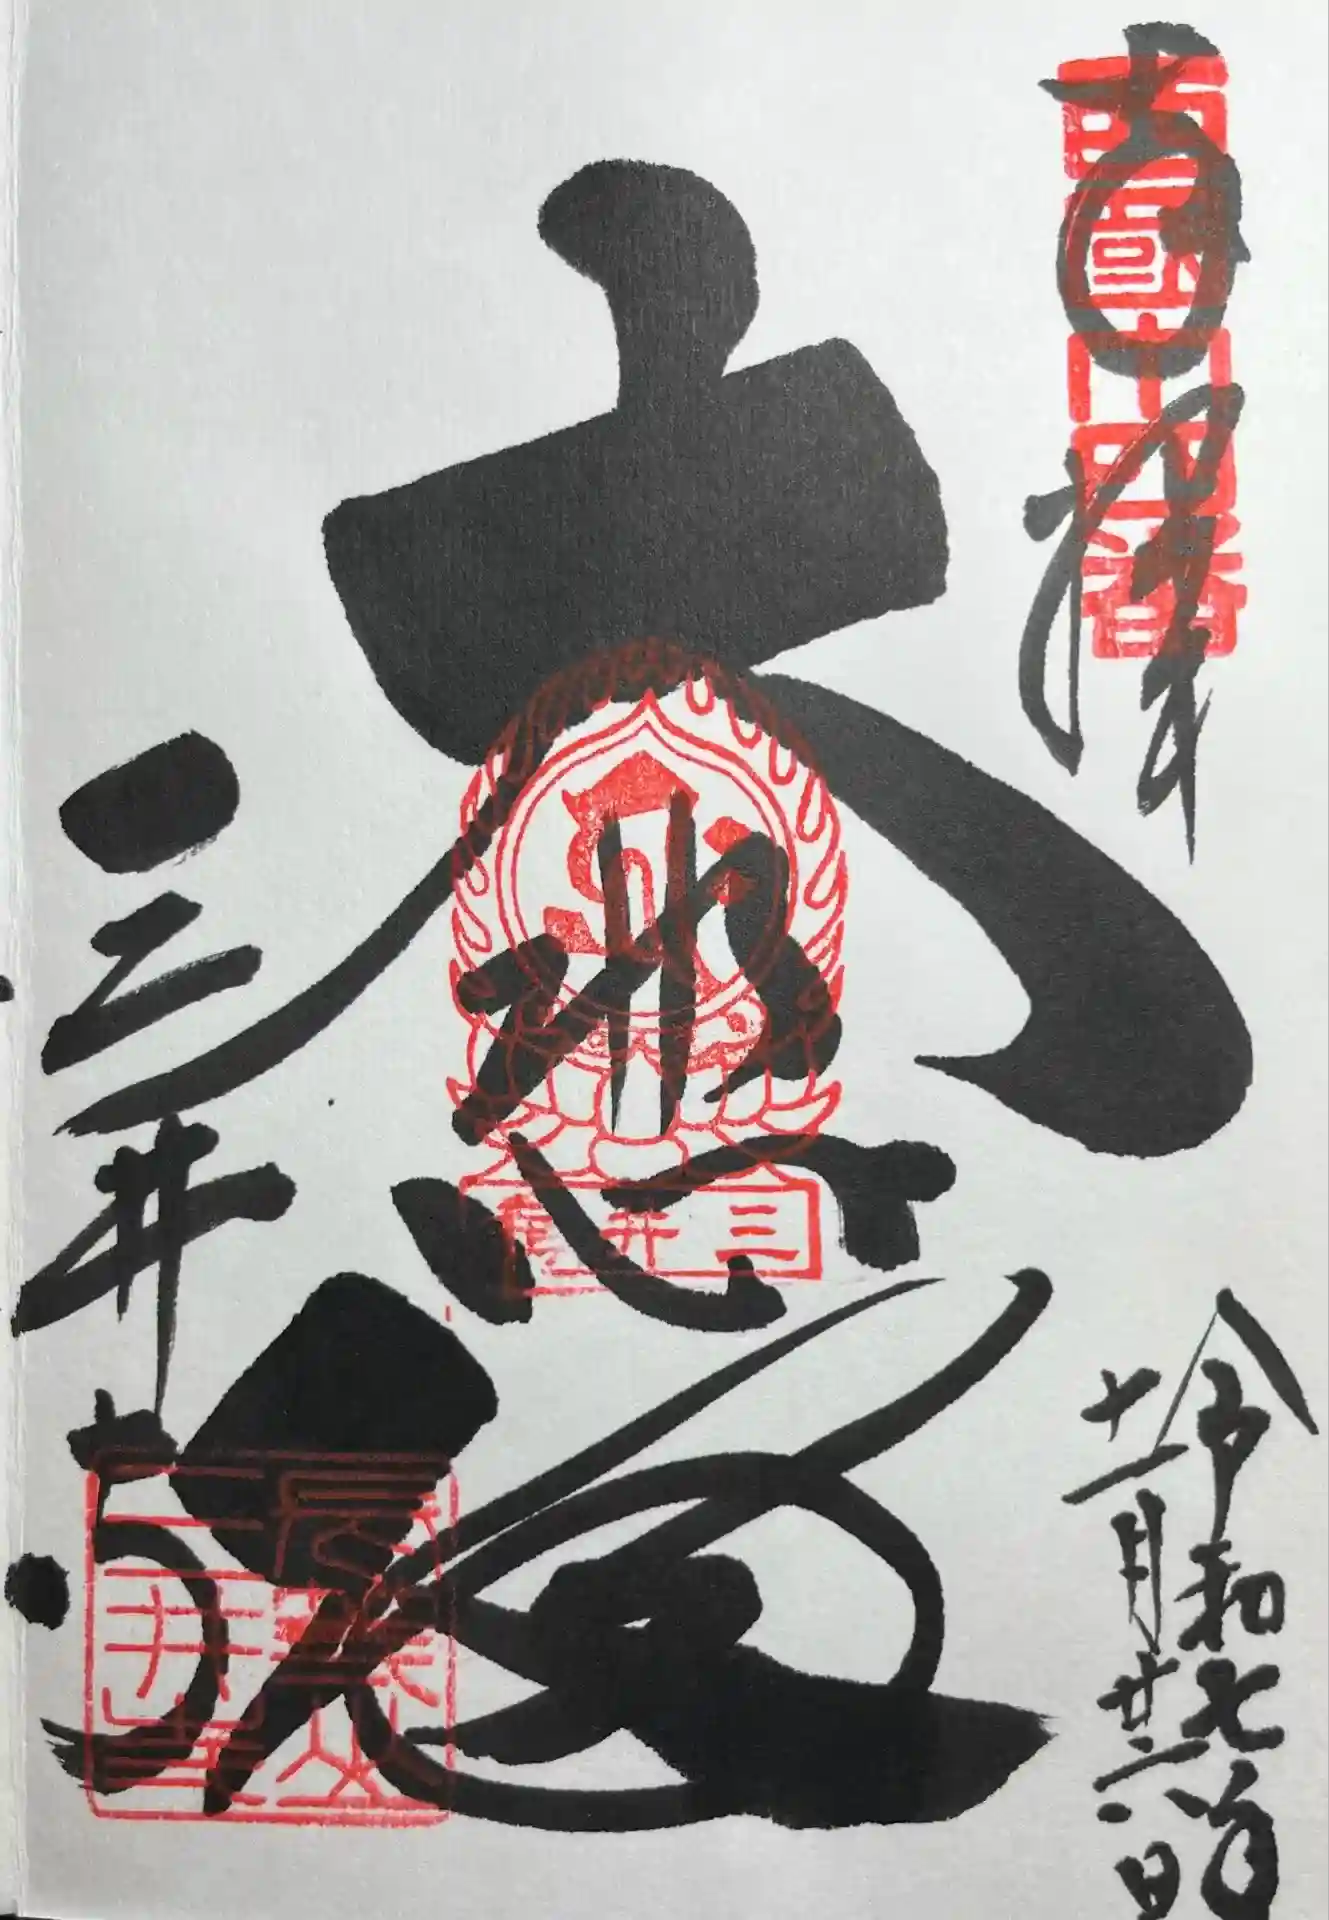 奉拝
西国十四番
大悲殿
三井寺
三井寺
長等山
三井寺
令和七年
十一月廿六日